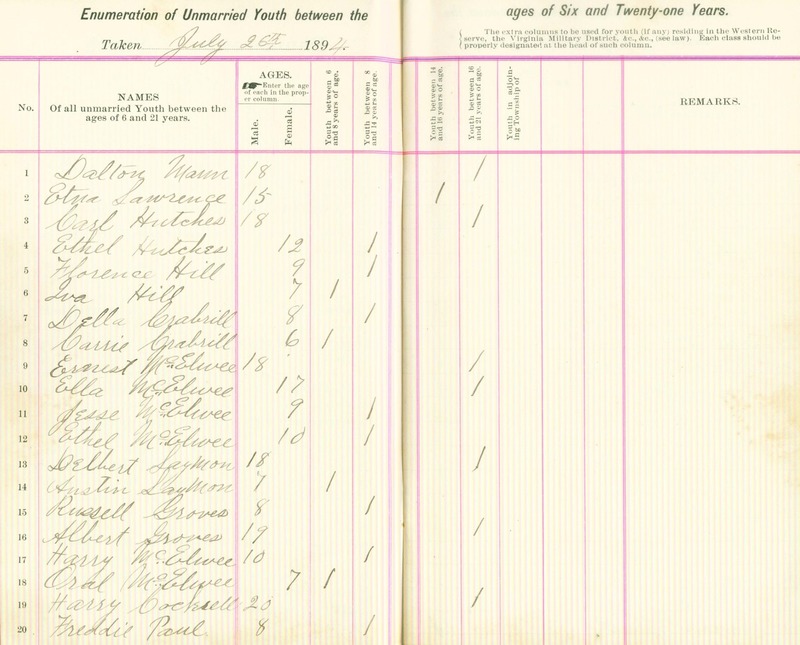 Enumeration of Unmarried Youth between the ages of Six and Twenty-one Years.
Taken July 26th 1894.
The extra columns to be used for youth (if any) residing in the Western Re-
serve, the Virginia Military District, &c., &c., (see law). Each class should be
properly designated at the head of such column.
No.
NAMES
Of all unmarried Youth between the
ages of 6 and 21 years.
AGES.
Enter the age
of each in the prop-
er column
Male.
Female.
Youth between 6
and 8 years of age.
Youth between 8
and 14 years of age.
Youth between 14
and 16 years of age.
Youth between 16
and 21 years of age.
Youth in adjoin-
ing Township of
REMARKS.
1 Dalton Mann 18 /
2 Etna Lawrence 15 /
3 Carl Hutches 18 /
4 Ethel Hutches 12 /
5 Florence Hill 9 /
6 Iva Hill 7 /
7 Della Crabrill 8 /
8 Carrie Crabrill 6 /
9 Ernest McElwee 18 /
10 Ella McElwee 17 /
11 Jesse McElwee 9 /
12 Ethel McElwee 10 /
13 Delbert Laymon 18 /
14 Austin Laymon 7 /
15 Russell Groves 8 /
16 Albert Groves 19 /
17 Harry McElwee 10 /
18 Oral McElwee 7 /
19 Harry Cockrell 20 /
20 Freddie Paul 8 /